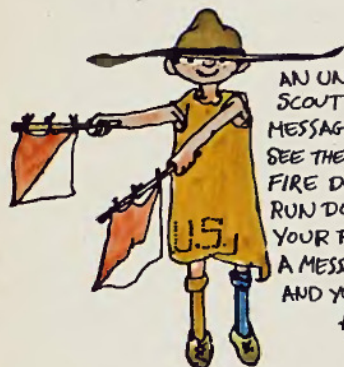 AN UN
SCOUT
MESSAG
SEE THE
FIRE D
RUN DO
YOUR
A MESS
AND YO
U.S.